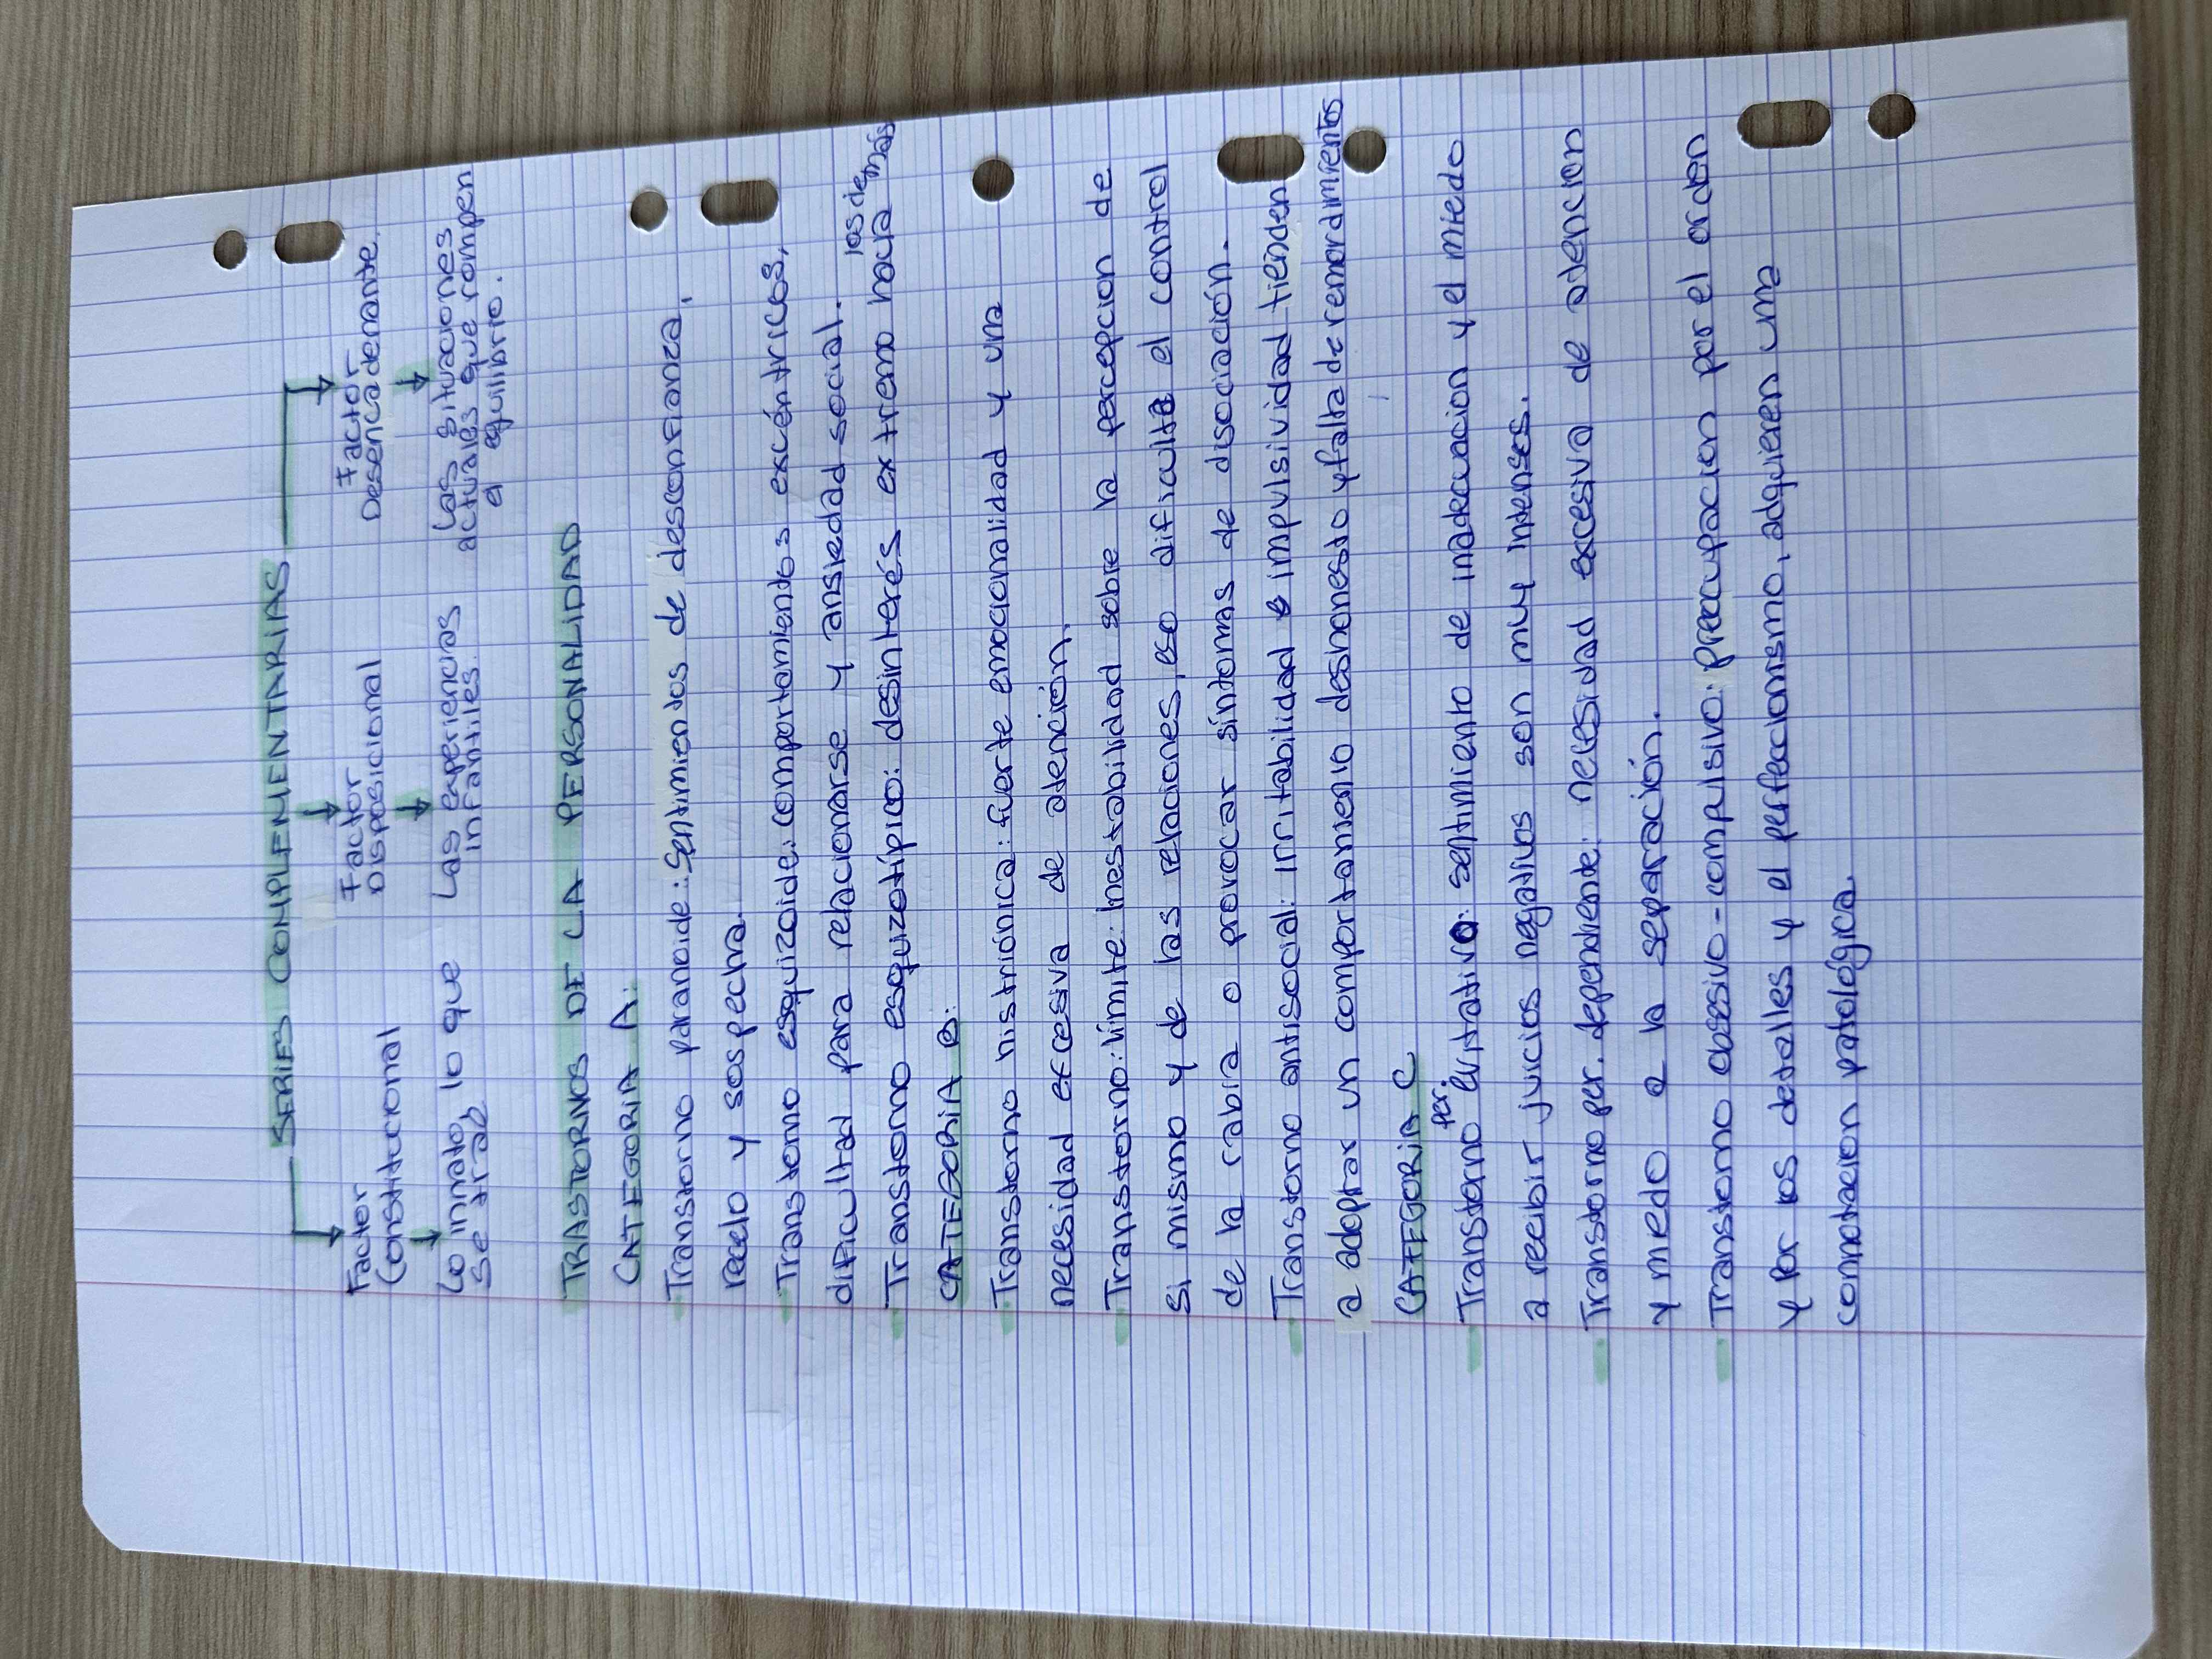 SERIES COMPLEMENTARIAS
Factor Constitucional
Factor Disposicional
Factor Desencadenante.
Lo innato, lo que se trae
Las experiencias infantiles.
Las situaciones actuales que rompen el equilibrio.
TRASTORNOS DE LA PERSONALIDAD
CATEGORIA A:
Transtorno paranoide: Sentimientos de desconfianza,
recelo y sospecha.
Transtorno esquizoide: comportamientos excéntricos,
dificultad para relacionarse y ansiedad social.
Transtorno esquizotípico: desinterés extremo hacia los demás
CATEGORIA B:
Transtorno histriónica: fuerte emocionalidad y una
necesidad excesiva de atención.
Transtorno: límite: Inestabilidad sobre la percepcion de
si mismo y de las relaciones, eso dificulta el control
de la rabia o provocar síntomas de disociación.
Transtorno antisocial: irritabilidad e impulsividad tienden
a adoptar un comportamiento deshonesto y falta de remordimientos
CATEGORIA C
Transtorno per. evitativo: sentimiento de inadecuacion y el miedo
a recibir juicios negativos son muy intensos.
Transtorno per. dependiente: necesidad excesiva de atencion
y miedo a la separación.
Transtorno obsesivo-compulsivo: preocupacion por el orden
y por los detalles y el perfeccionismo, adquieren una
connotacion patológica.